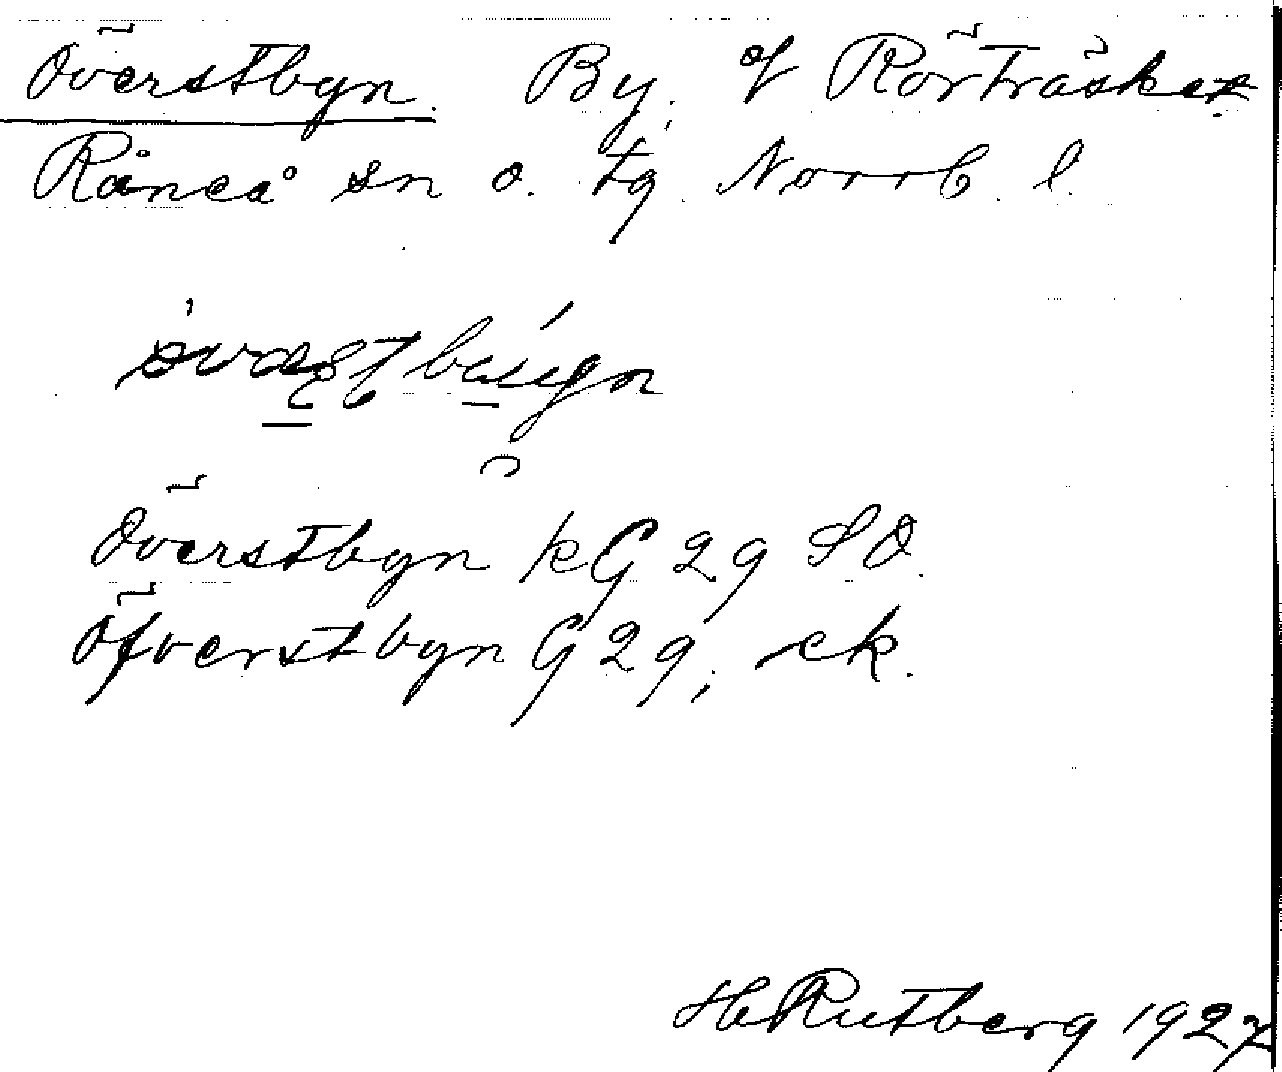 Överstbyn. By, ö Rörträsket
Råneå sn o. tg. Norrb. l.
Överstbyn kG 29 SO.
Öfverstbyn G 29, ek.
H Rutberg 1927